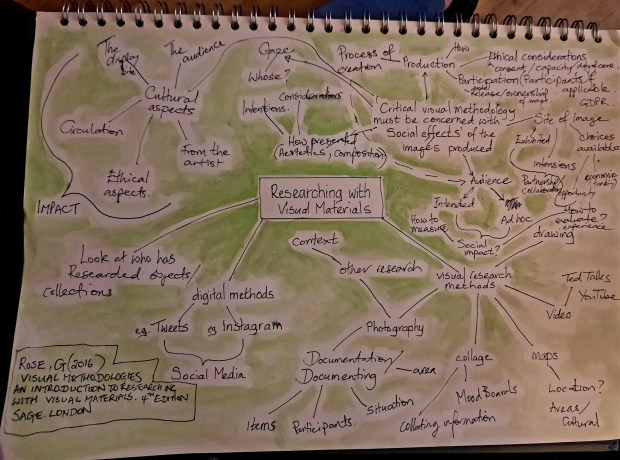 The
display
site
The
audience
Cultural
aspects
Circulation
Ethical
aspects.
From the
artist
IMPACT
Gaze
Whose?
Intentions
Considerations
How presented
(Aesthetics, Composition)
Process of
creation
Production
How
Ethical considerations
consent / capacity
Participation (Participants if
applicable.
model
release/ownership
of image
GDPR.
Critical visual methodology
must be concerned with
Social effects of the
images produced
Site of Image
Exhibited
choices
available
intensions
Partnership/
Collaboration
economic
opportunity
How to
evaluate?
experience
Audience
Intended
Ad hoc
How to
measure
Social
impact?
Researching with
Visual Materials
Look at who has
Researched objects
collections
digital methods
eg. Tweets
eg Instagram
Social Media
Context
other research
Photography
Documentation/
Documenting
area
Items
Participants
Situation
visual research
methods
drawing
Ted Talks
YouTube
Video
collage
Mood Boards
Collating information
maps
Location?
Areas/
Cultural
ROSE, G (2016)
VISUAL METHODOLOGIES
AN INTRODUCTION TO RESEARCHING
WITH VISUAL MATERIALS. 4TH EDITION
SAGE. LONDON